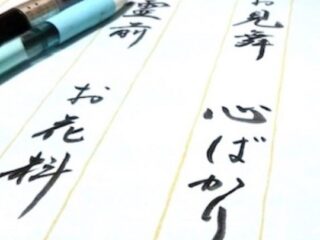 お見舞
心ばかり
霊前
お花料